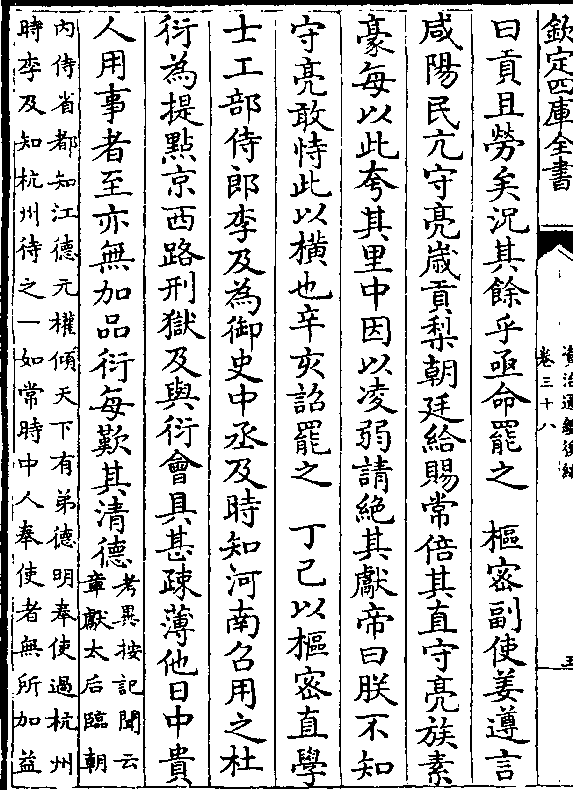 欽定四庫全書
資治通鑑後編
卷三十八
五
曰貢且勞矣況其餘乎亟命罷之　樞密副使姜遵言
咸陽民亢守亮嵗貢梨朝廷給賜常倍其直守亮族素
豪每以此夸其里中因以凌弱請絶其獻帝曰朕不知
守亮敢恃此以横也辛亥詔罷之　丁己以樞密直學
士工部侍郎李及為御史中丞及時知河南召用之杜
衍為提點京西路刑獄及與衍會具甚疎薄他日中貴
人用事者至亦無加品衍每歎其清德
考異按記聞云
章獻太后臨朝
内侍省都知江德元權傾天下有弟德明奉使過杭州
時李及知杭州待之一如常時中人奉使者無所加益